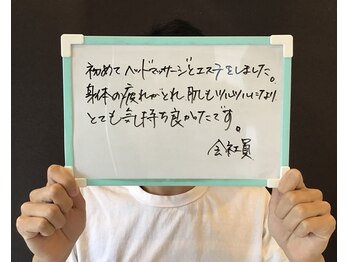 初めてヘッドマッサージとエステをしました。
身体の疲れがとれ肌もツルツルになり
とても気持ち良かったです。
会社員